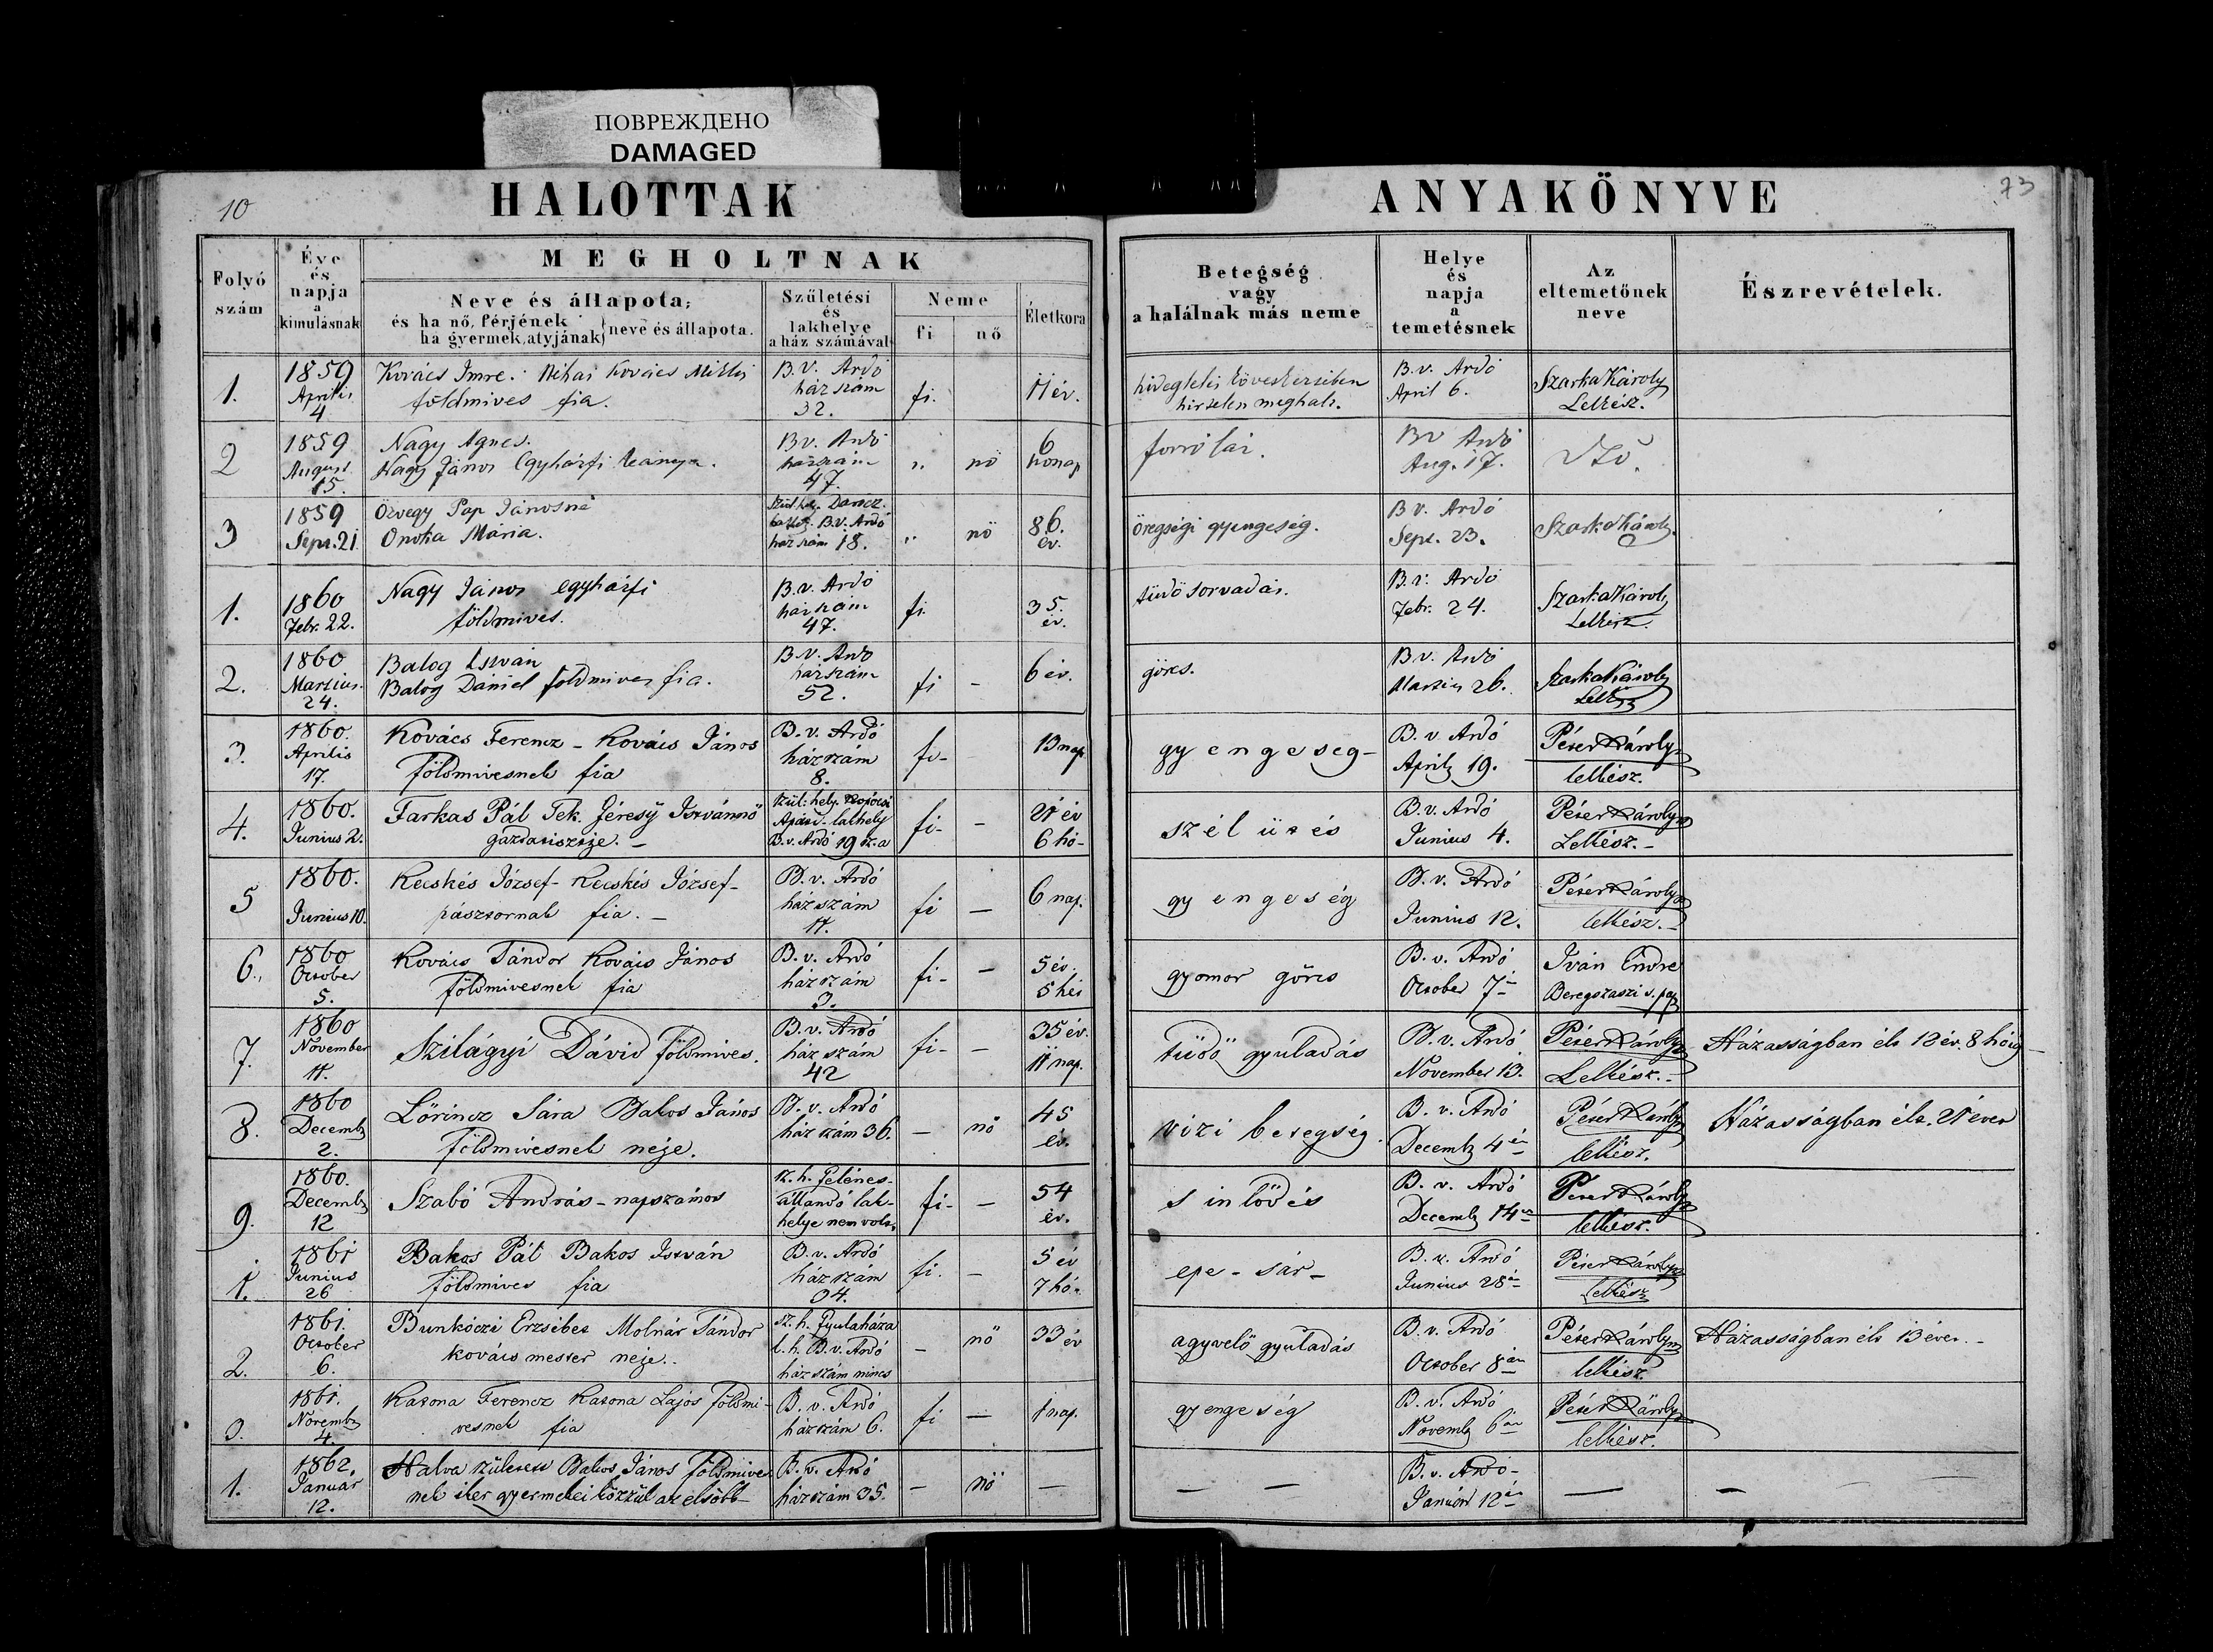 ПОВРЕЖДЕНО
DAMAGED
10
HALOTTAK
ANYAKÖNYVE
73
Folyó szám
Éve és napja a kimulásnak
MEGHOLTNAK
Neve és állapota;
és ha nő, férjének
ha gyermek, atyjának} neve és állapota.
Születési és lakhelye a ház számával
Neme
fi
nő
Életkora
Betegség vagy a halálnak más neme
Helye és napja a temetésnek
Az eltemetőnek neve
Észrevételek.
1.
1859 Aprilis 4
Kovács Imre.
Kovács Miklós
földmives fia.
B.v. Ardó
házszám
32.
fi.
11 év.
hirtelen meghalt.
B.v. Ardó
April 6.
Szarka Károly
Lelkész.
2
1859 August. 15.
Nagy Agnes.
Nagy János Egyházfi leánya.
Bv. Ardó
házszám
47.
"
nö
6 honap
forró láz.
Bv Ardó
Aug. 17.
3
1859 Sept. 21
Özvegy Pap Jánosné
Onoka Mária.
B.v. Ardó
házszám 18.
"
nö
86. év.
öregségi gyengeség.
B v. Ardó
Sept. 23.
Szarka Károly.
1.
1860 Febr. 22.
Nagy János egyházfi
földmives.
B.v. Ardó
házszám
47.
fi
35. év.
tüdö sorvadás.
B.v. Ardó
Febr. 24.
Szarka Károly
Lelkész.
2.
1860 Martius. 24.
Balog István
Balog Dániel földmives fia.
B.v. Ardó
házszám
52.
fi -
6 év.
görcs.
B v. Ardó
Martius 26.
Szarka Károly
3.
1860. Aprilis 17.
Kovács Ferencz - Kovács János
földmivesnek fia
B. v. Ardó
házszám
8.
fi-
13 nap
gyengeseg-
B. v. Ardó
April 19.
Péter Károly
lelkész.
4.
1860. Junius 2.
Farkas Pál Tek. Jéresÿ Istvánnö
gazdatisztje. -
Szül: hely.
lakhely
B. v. Ardó 19 sz.a
fi- -
21 év
6 hó-
szélütés
B. v. Ardó
Junius 4.
Péter Károly
Lelkész.-
5
1860. Junius 10.
Kecskés József- Kecskés József-
pásztornak fia. -
B. v. Ardó
házszam
11.
fi -
6 nap.
gyengeség
B. v. Ardó
Junius 12.
Péter Károly
lelkész.-
6.
1860 October 5.
Kovács Sándor Kovács János
földmivesnek fia
B. v. Ardó
házszám
3.
fi- -
5 év.
5 hét
gyomor görcs
B. v. Ardó
October 7-
Iván Endre
Beregszaszi s. pap
7.
1860 November 11.
Szilágyi Dávid földmives.
B. v. Ardó
házszám
42
fi- -
35 év.
11 nap.
tüdö gyuladás
B. v. Ardó
November 13.
Péter Károly
Lelkész.-
Házasságban élt 12 év. 8 hóig
8.
1860 Decemb 2.
Lörincz Sára Bakos János
földmivesnek neje.
B. v. Ardó
házszám 36.
- nö
45 év.
vizi betegség.
B. v. Ardó
Decemb 4én
Péter Károly
lelkész.
Házasságban élt. 21 évet
9.
1860. Decemb 12
Szabó András - napszámos
sz. h. Jelénes-
állandó lak-
helye nem volt.
fi- -
54 év.
sinlödés
B. v. Ardó
Decemb 14én
Péter Károly
lelkész.
1.
1861 Junius 26
Bakos Pál Bakos István
földmives fia
B. v. Ardó
házszám
34.
fi. -
5 év
7 hó.
epe - sár -
B. v. Ardó
Junius 28án
Péter Károly
lelkész
2.
1861. October 6.
Bunkóczi Erzsébet Molnár Sándor
kovács mester neje.
sz. h. Gyulaháza
l. h. B. v. Ardó
házszám nincs
- nö
33 év
agyvelö gyuladás
B. v. Ardó
October 8án
Péter Károly
lelkész
Házasságban élt 13 évet. -
3.
1861. Novemb 4.
Katona Ferencz Katona Lajos földmi-
vesnek fia
B. v. Ardó
házszám 6.
fi -
1 nap.
gyengeség
B. v. Ardó
Novemb 6án
Péter Károly
lelkész.
1.
1862. Január 12.
Halva született Bakos János földmives
nek iker gyermekei közzül az elsöbb-
B. v. Ardó
házszám 35.
- nö -
- -
B. v. Ardó-
Január 12én
-
-